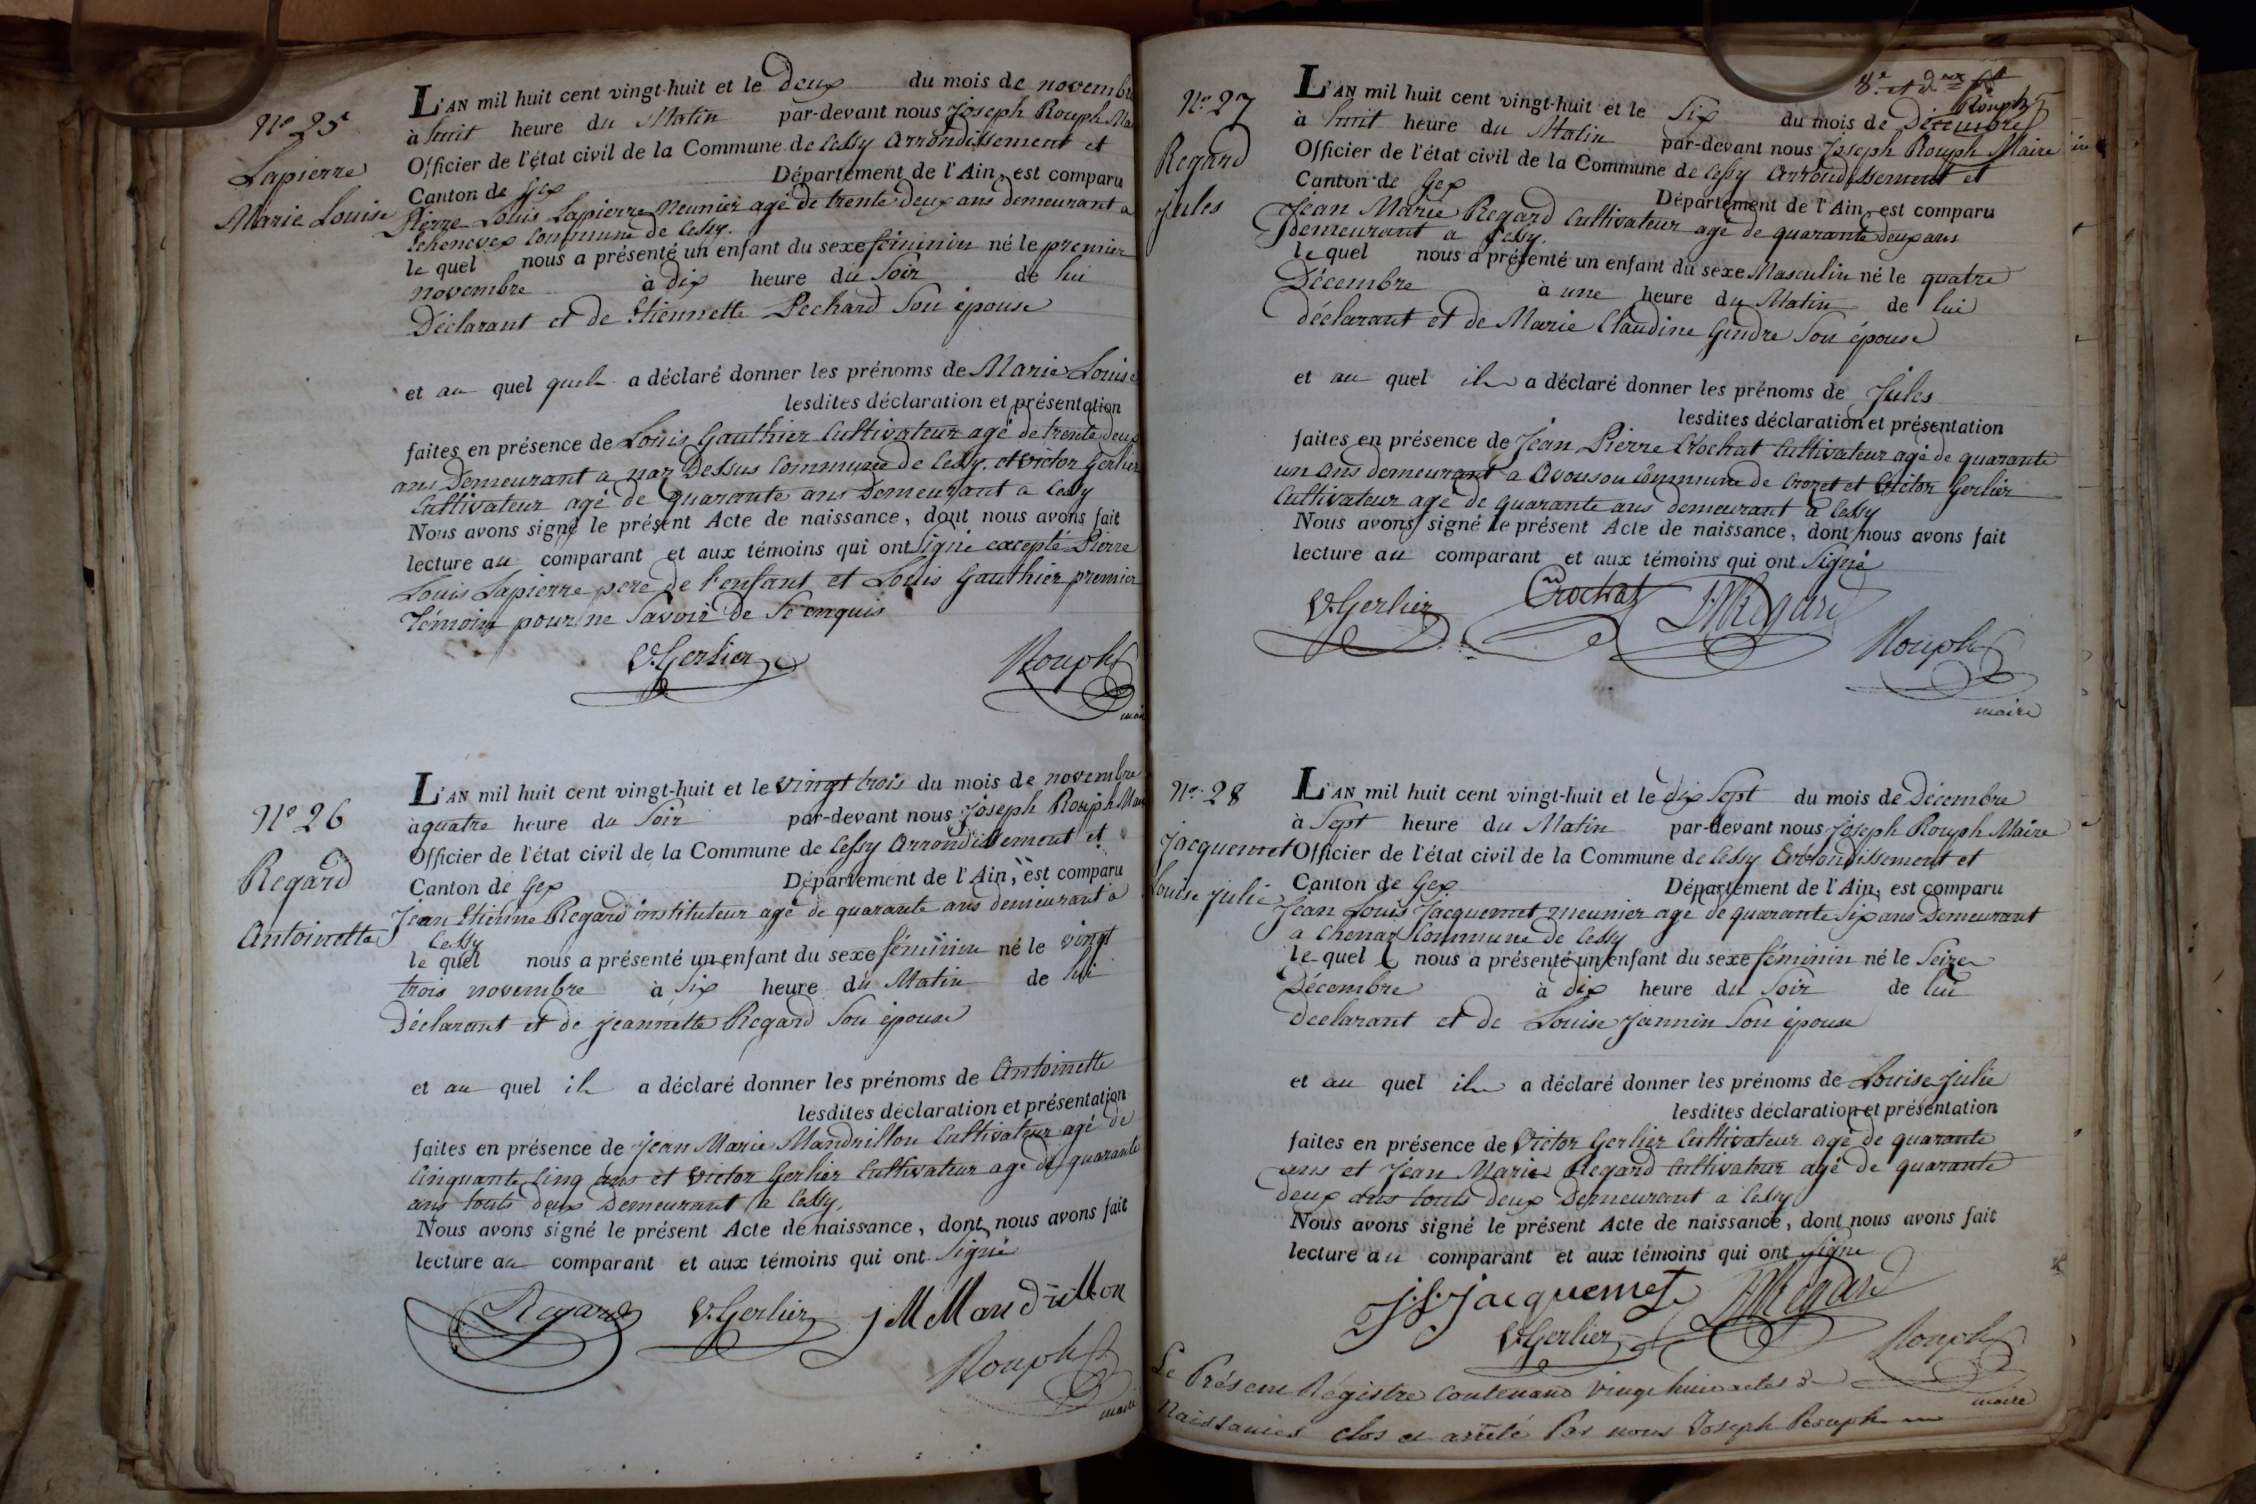 Nº 25
Lapierre
Marie Louise
L'AN mil huit cent vingt-huit et le deux du mois de novembre
à huit heure du Matin par-devant nous Joseph Rouph Mai
Officier de l'état civil de la Commune de Cessy Arrondissement et
Canton de Gex Département de l'Ain, est comparu
Pierre Louis Lapierre Meunier agé de trente deux ans demeurant a
commune de Cessy.
le quel nous a présenté un enfant du sexe féminin né le premier
novembre à dix heure du Soir de lui
Déclarant et de Etiennette Pechard Son épouse
et au quel a déclaré donner les prénoms de Marie Louise
lesdites déclaration et présentation
faites en présence de Louis Gauthier Cultivateur agé de trente deux
ans Demeurant a Dessus Commune de Cessy. et Victor Gerlier
Cultivateur agé de quarante ans Demeurant a Cessy
Nous avons signé le présent Acte de naissance, dont nous avons fait
lecture au comparant et aux témoins qui ont Signé excepté Pierre
Louis Lapierre pere de l'enfant et Louis Gauthier premier
Témoin pour ne Savoir de ce enquis
V. Gerlier Rouph
maire
Nº 26
Regard
Antoinette
L'AN mil huit cent vingt-huit et le vingt trois du mois de novembre
à quatre heure du Soir par-devant nous Joseph Rouph Mai
Officier de l'état civil de la Commune de Cessy Arrondissement et
Canton de Gex Département de l'Ain, est comparu
Jean Etienne Regard instituteur agé de quarante ans demeurant a
Cessy
le quel nous a présenté un enfant du sexe féminin né le vingt
trois novembre à Six heure du Matin de lui
Déclarant et de Jeannette Regard Son épouse
et au quel il a déclaré donner les prénoms de Antoinette
lesdites déclaration et présentation
faites en présence de Jean Marie Mandrillon Cultivateur agé de
Cinquante Cinq ans et Victor Gerlier Cultivateur agé de quarante
ans touts deux Demeurant a Cessy
Nous avons signé le présent Acte de naissance, dont nous avons fait
lecture au comparant et aux témoins qui ont Signé
Regard V. Gerlier J M Mandrillon
Rouph
maire
Rouph
Nº 27
Regard
Jules
L'AN mil huit cent vingt-huit et le Six du mois de Décembre
à huit heure du Matin par-devant nous Joseph Rouph Maire
Officier de l'état civil de la Commune de Cessy Arrondissement et
Canton de Gex Département de l'Ain, est comparu
Jean Marie Regard Cultivateur agé de quarante deux ans
demeurant a Cessy.
le quel nous a présenté un enfant du sexe Masculin né le quatre
Décembre à une heure du Matin de lui
déclarant et de Marie Claudine Gindre Son épouse
et au quel il a déclaré donner les prénoms de Jules
lesdites déclaration et présentation
faites en présence de Jean Pierre Crochat Cultivateur agé de quarante
un ans demeurant a Avouson Commune de Crozet et Victor Gerlier
Cultivateur agé de quarante ans demeurant à Cessy
Nous avons signé le présent Acte de naissance, dont nous avons fait
lecture au comparant et aux témoins qui ont Signé
V. Gerlier Crochat JMRegard
Rouph
maire
Nº 28
Jacquemet
Louise Julie
L'AN mil huit cent vingt-huit et le dix Sept du mois de Décembre
à Sept heure du Matin par-devant nous Joseph Rouph Maire
Officier de l'état civil de la Commune de Cessy Arrondissement et
Canton de Gex Département de l'Ain, est comparu
Jean Louis Jacquemet Meunier agé de quarante Six ans Demeurant
a Chenaz Commune de Cessy
le quel nous a présenté un enfant du sexe féminin né le Seize
Décembre à dix heure du Soir de lui
Declarant et de Louise Jannin Son épouse
et au quel il a déclaré donner les prénoms de Louise Julie
lesdites déclaration et présentation
faites en présence de Victor Gerlier Cultivateur agé de quarante
ans et Jean Marie Regard Cultivateur agé de quarante
deux ans touts deux Demeurant a Cessy
Nous avons signé le présent Acte de naissance, dont nous avons fait
lecture au comparant et aux témoins qui ont Signé
J. L. Jacquemet JMRegard
V. Gerlier Rouph
maire
Le Présent Régistre contenant vingt huit actes de
Naissances clos et arrêté Par nous Joseph Rouph